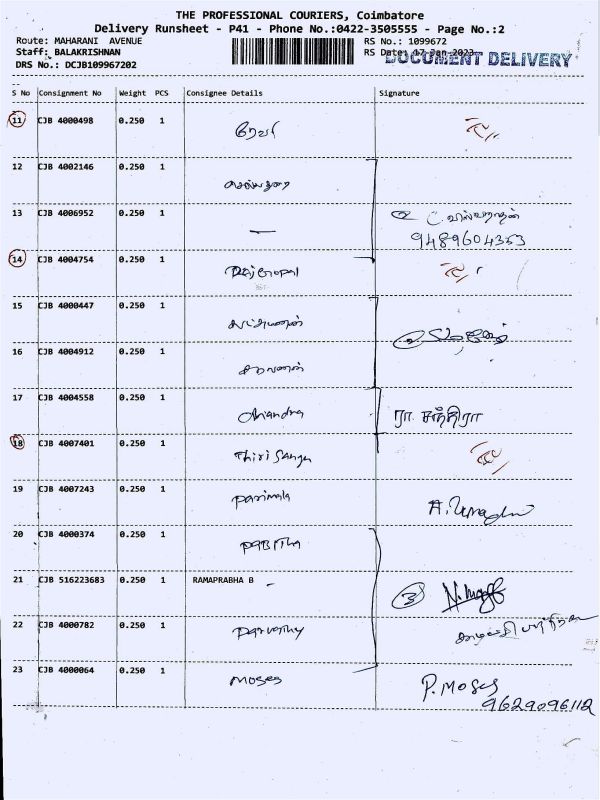 THE PROFESSIONAL COURIERS, Coimbatore
Delivery Runsheet - P41 - Phone No.:0422-3505555 - Page No.:2
Route: MAHARANI AVENUE RS No.: 1099672
Staff: BALAKRISHNAN RS Date: 17-Jan-2023
DOCUMENT DELIVERY
DRS No.: DCJB109967202
S No Consignment No Weight PCS Consignee Details Signature
11 CJB 4000498 0.250 1 ரேவதி
12 CJB 4002146 0.250 1
13 CJB 4006952 0.250 1 —
9489604353
14 CJB 4004754 0.250 1 Rajgopal
15 CJB 4000447 0.250 1 லட்சுமணன்
16 CJB 4004912 0.250 1 சரவணன்
17 CJB 4004558 0.250 1 Chandra ரா. சந்திரா
18 CJB 4007401 0.250 1
19 CJB 4007243 0.250 1 Parimala
20 CJB 4000374 0.250 1 PABITHA
21 CJB 516223683 0.250 1 RAMAPRABHA B -
22 CJB 4000782 0.250 1 Parvathy
23 CJB 4000064 0.250 1 Moses P. Moses
9629096112